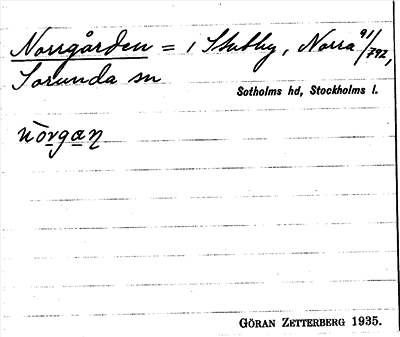 Norrgården = i Stutby, Norra 91/792,
Sorunda sn
Sotholms hd, Stockholms l.
nòrgan
GÖRAN ZETTERBERG 1935.